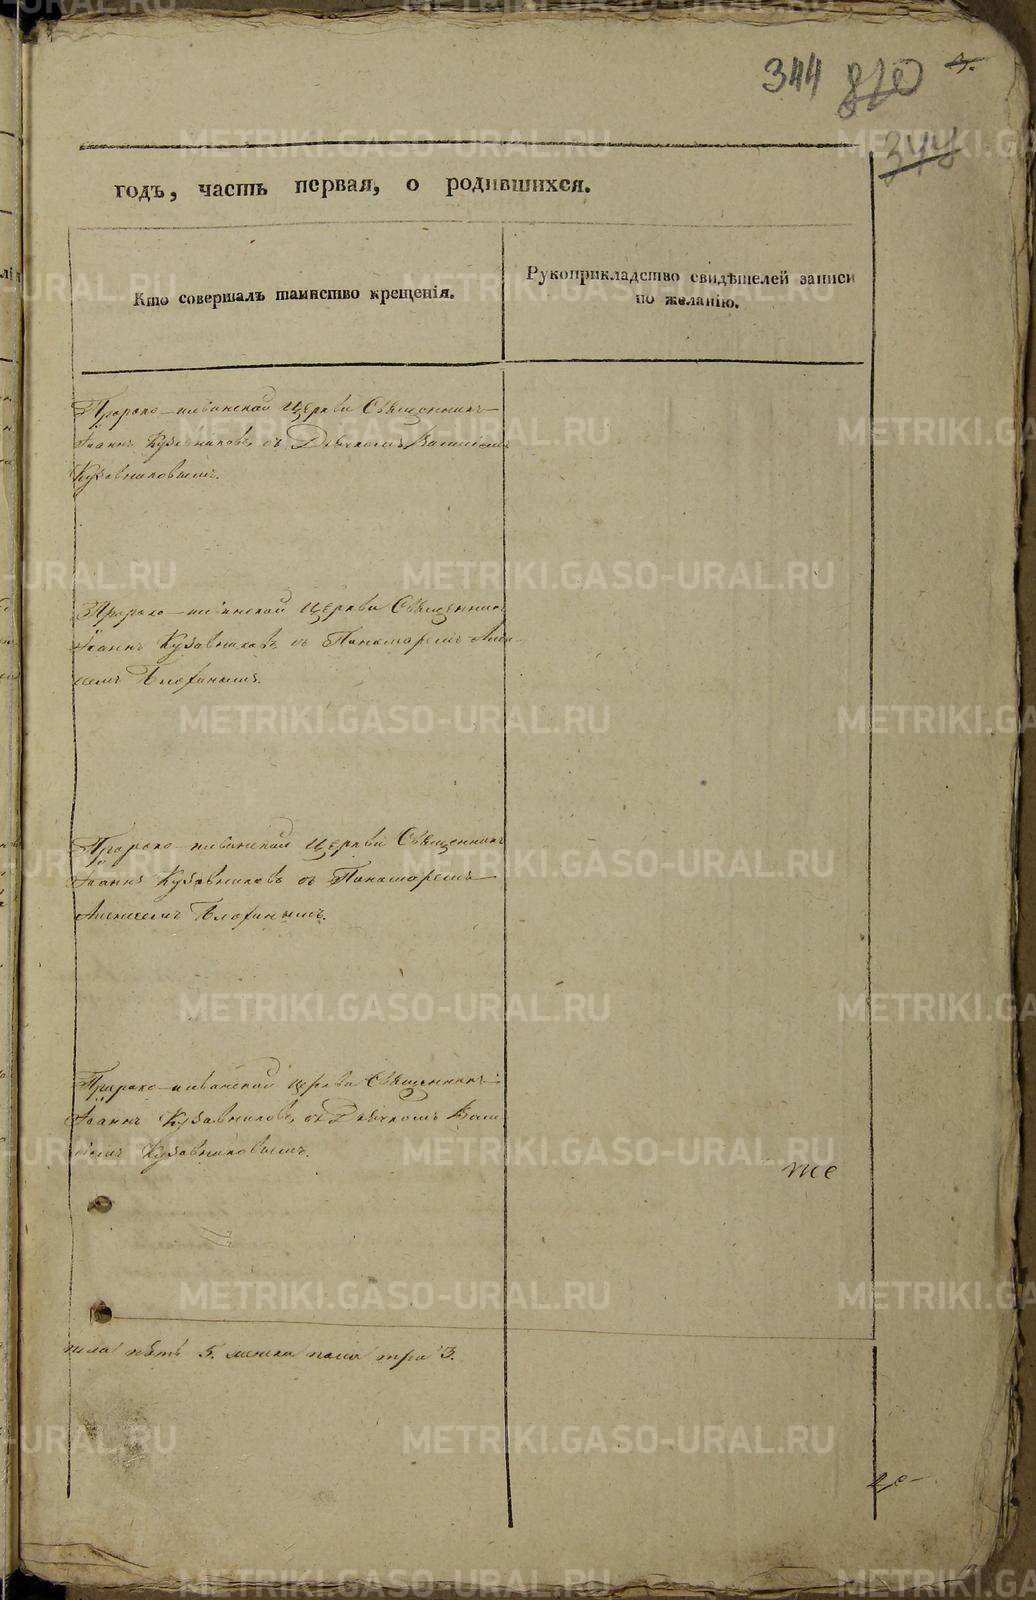 344 870 4.
344
годъ, часть первая, о родившихся.
Кто совершалъ таинство крещенія.
Рукоприкладство свидѣтелей записи
по желанію.
Пророко-ильинской Церкви Священникъ
Іоаннъ Кузовниковъ, съ Дьячкомъ Васильемъ
Кузовниковымъ.
Пророко-ильинской Церкви Священникъ
Іоаннъ Кузовниковъ съ Пономаремъ Алек-
сеемъ
Пророко-ильинской Церкви Священникъ
Іоаннъ Кузовниковъ съ Пономаремъ
Алексеемъ
Пророко-ильинской Церкви Священникъ
Іоаннъ Кузовниковъ, съ Дьячкомъ Васи-
ліемъ Кузовниковымъ.
пола пять 5. женска пола три 3.
METRIKI.GASO-URAL.RU